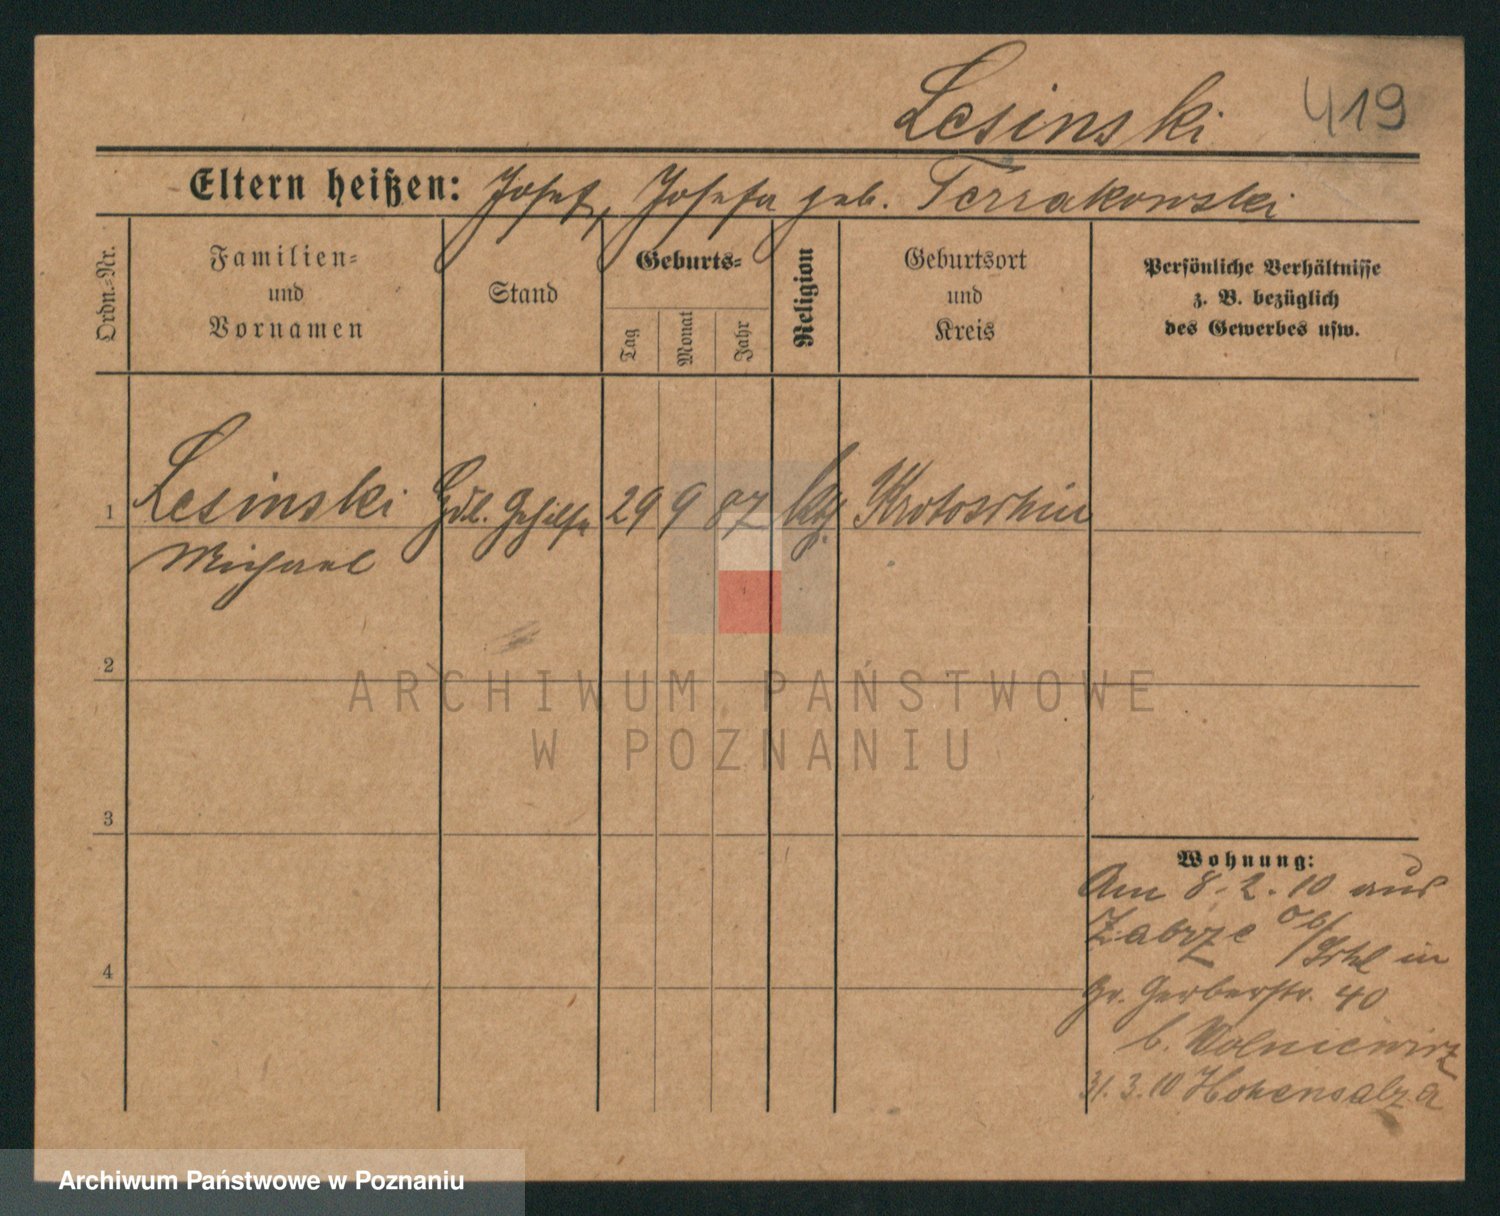 Lesinski 419
Eltern heißen: Josef, Josefa geb. Terrakowski
Ordn.-Nr.
Familien-
und
Vornamen
Stand
Geburts-
Tag
Monat
Jahr
Religion
Geburtsort
und
Kreis
Persönliche Verhältnisse
z. B. bezüglich
des Gewerbes usw.
1 Lesinski Hdl. Gehilfe 29 9 87 Kreis Krotoschin
Michael
2
ARCHIWUM PAŃSTWOWE
W POZNANIU
3
Wohnung:
Am 8.2.10 aus
Zabrze in
4
Gr. Gerberstr. 40
b. Wolniewicz
31.3.10 Hohensalza
Archiwum Państwowe w Poznaniu